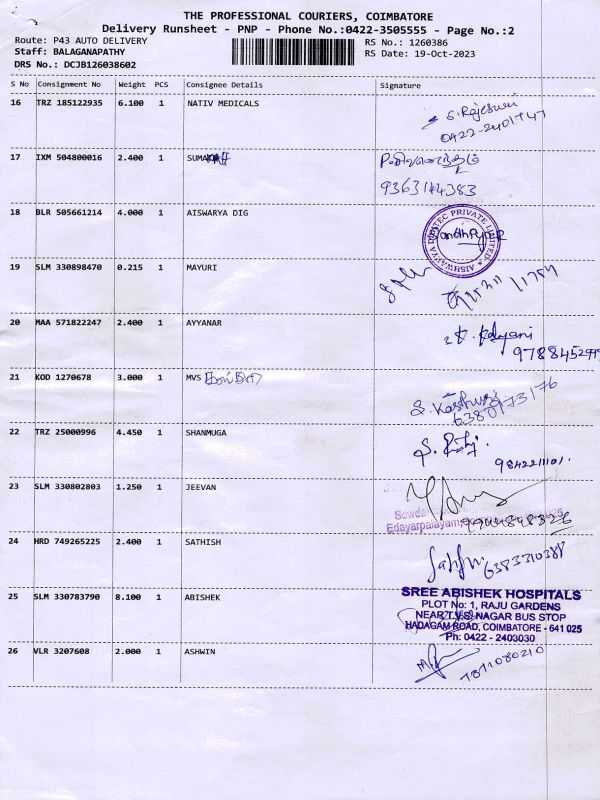 THE PROFESSIONAL COURIERS, COIMBATORE
Delivery Runsheet - PNP - Phone No.:0422-3505555 - Page No.:2
Route: P43 AUTO DELIVERY
RS No.: 1260386
Staff: BALAGANAPATHY
RS Date: 19-Oct-2023
DRS No.: DCJB126038602
S No Consignment No Weight PCS Consignee Details Signature
16 TRZ 185122935 6.100 1 NATIV MEDICALS
S. Rajeswari
17 IXM 504800016 2.400 1
9363144383
18 BLR 505661214 4.000 1 AISWARYA DIG
19 SLM 330898470 0.215 1 MAYURI
20 MAA 571822247 2.400 1 AYYANAR
21 KOD 1270678 3.000 1 MVS
22 TRZ 25000996 4.450 1 SHANMUGA
9842211101.
23 SLM 330802803 1.250 1 JEEVAN
Edayarpalayam
24 HRD 749265225 2.400 1 SATHISH
6383310388
25 SLM 330783790 8.100 1 ABISHEK
SREE ABISHEK HOSPITALS
PLOT No: 1, RAJU GARDENS
NEAR T.V.S. NAGAR BUS STOP
HADAGAM ROAD, COIMBATORE - 641 025
Ph: 0422 - 2403030
26 VLR 3207608 2.000 1 ASHWIN